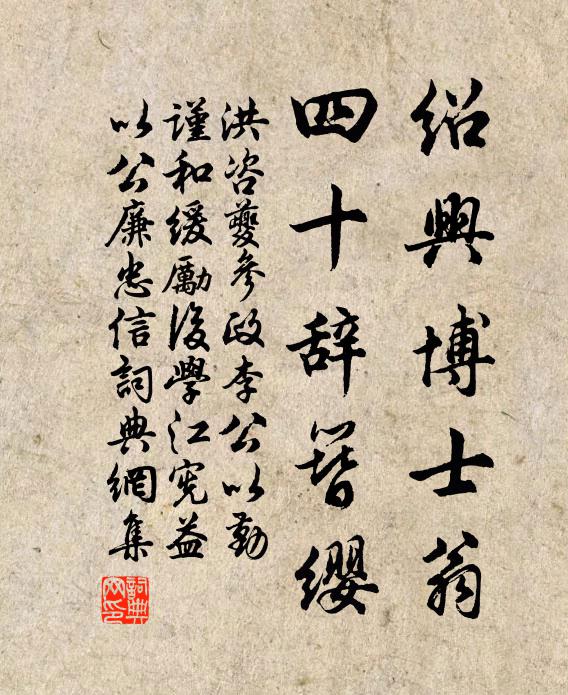 绍興博士翁
四十辞簪缨
洪咨夔參政李公以勤
謹和缓勵後學江宪益
以公廉忠信詞典網集
詞典网印